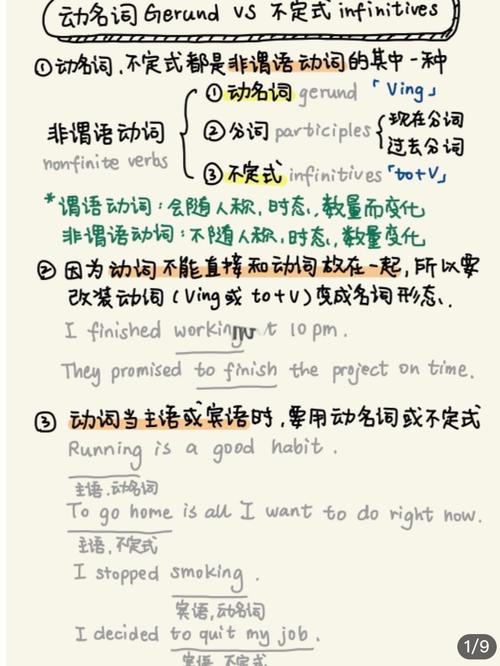 动名词 Gerund VS 不定式 infinitives
①动名词、不定式都是非谓语动词的其中一种
①动名词 gerund 「Ving」
非谓语动词
nonfinite verbs
②分词 participles
现在分词
过去分词
③不定式 infinitives 「to+V」
*谓语动词：会随人称、时态、数量而变化
非谓语动词：不随人称、时态、数量变化
②因为动词不能直接和动词放在一起，所以要
改装动词(Ving或 to+V)变成名词形态、.
I finished working at 10 pm.
They promised to finish the project on time.
③动词当主语或宾语时，要用动名词或不定式
Running is a good habit.
主语、动名词
To go home is all I want to do right now.
主语、不定式
I stopped smoking.
宾语、动名词
I decided to quit my job.
宾语 不定式
1/9